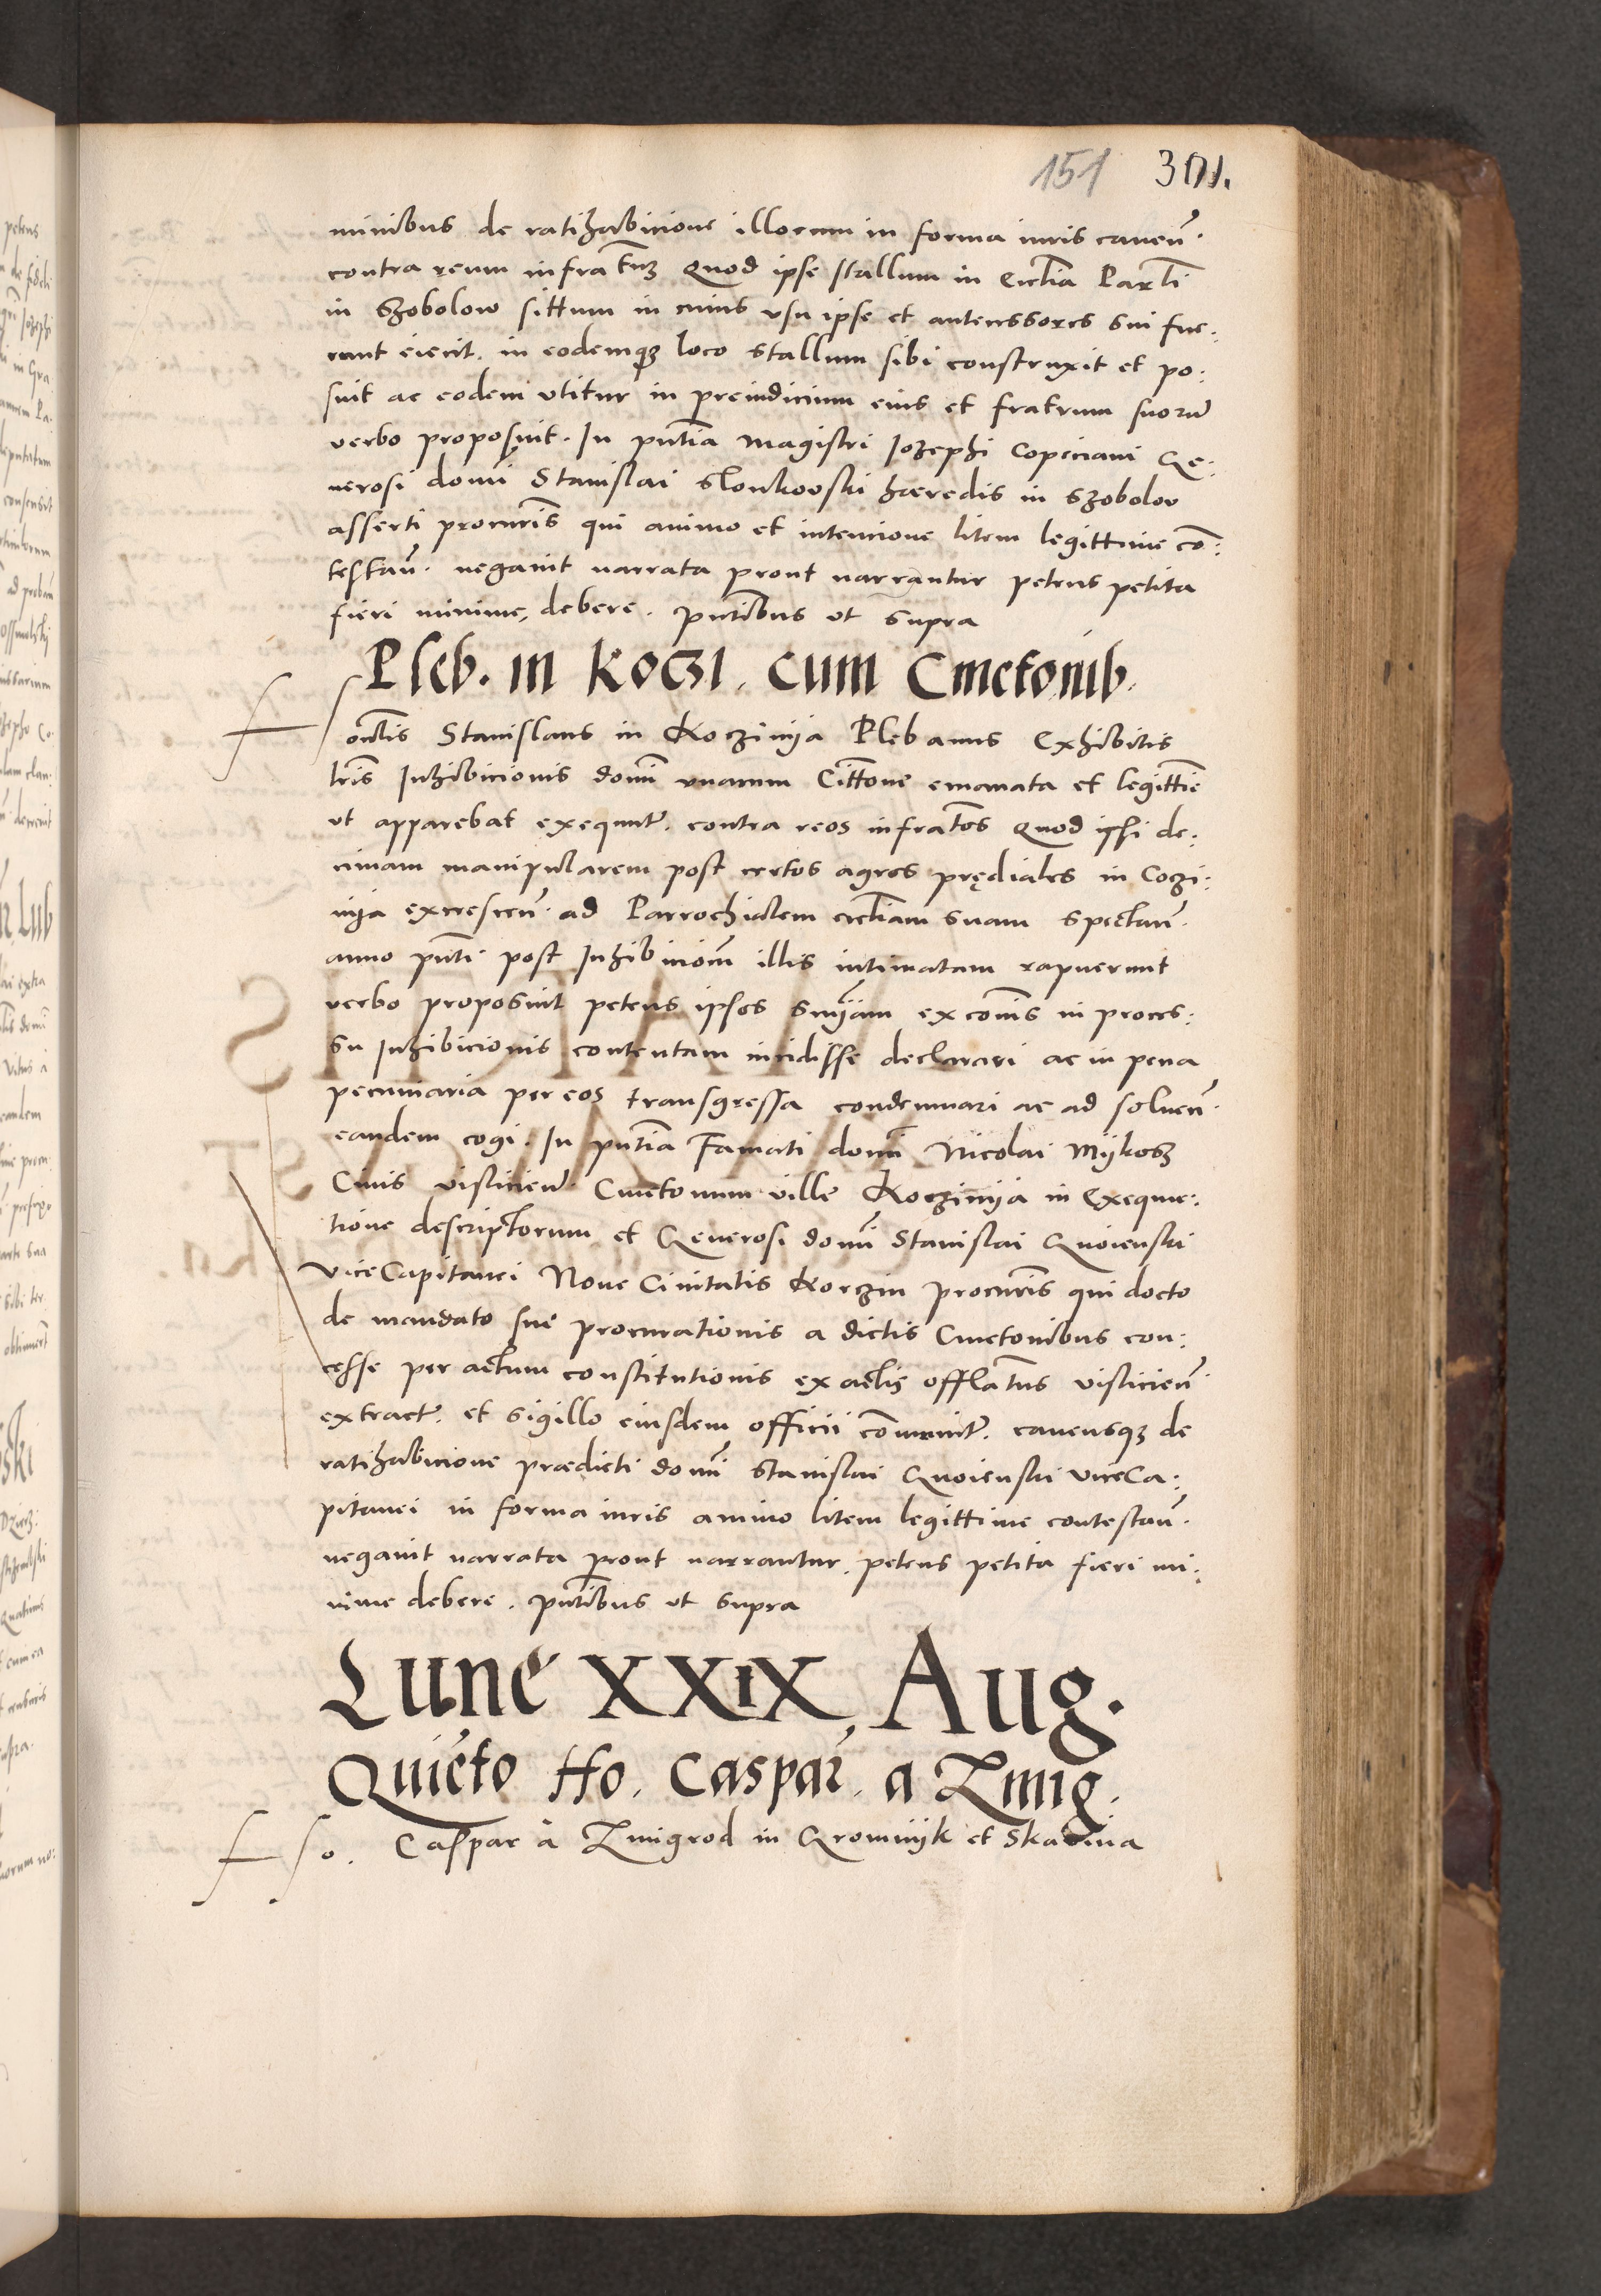 151 301.
minibus de ratihabicione illorum in forma iuris caueñ.
contra reum infratuʒ Quod ipse stallum in Ecclia Parli
in Szobolow sittum in cuius vsu ipse et antenssores sui fue:
runt eiecit. in eodemqʒ loco stallum sibi construxit et po:
suit ac eodem vtitur in preiudicium eius et fratrum suorũ
verbo proposuit. In pntia Magistri Iozephi Copiciani Ge:
nerosi domi Stanislai Slonkovski hæredis in Szobolov
asserti procuris qui animo et intencione litem legittime cõ:
testañ. negauit narrata prout narrantur petens petita
fieri minime, debere. pntibus vt supra
Pleb. in KoczI. cum Cmetonib.
Honlis Stanislaus in Koczinija Plebanus Exhibitis
lris Inhibicionis domi vnacum Cittone emanata et legittie
vt apparebat exequut. contra reos infratos Quod ipsi de:
cimam manipularem post certos agros prędiales in Cozi:
nija excrescen. ad Parrochialem eccliam suam spectañ.
anno pnti post Inhibiciom illis intimatam rapuerunt
verbo proposuit petens ipsos snijam excoīs in proces:
su Inhibicionis contentam incidisse declarari ac in pena
pecuniaria per eos transgressa condemnari ac ad soluen̄.
eandem cogi. In pntia Famati domi Nicolai Mijkosz
Ciuis visliciens. Cmetonum ville Koczinija in Exequu:
tione descriptorum et Generosi domi Stanislai Gnoienski
ViceCapitanei Noue Ciuitatis Korczin procuris qui docto
de mandato sue procurationis a dictis Cmetonibus con:
cesse per actum constitutionis ex actis offlatus vislicien̄.
extract. et sigillo eiusdem officii cõmunit. cauensqʒ de
ratihabicione prædicti domi Stanislai Gnoienski ViceCa:
pitanei in forma iuris animo litem legittime contestañ.
negauit narrata prout narrantur. petens petita fieri mi:
nime debere. pntibus vt supra
Lune XXIX, Aug.
Quieto Ho. Caspar. a Zmig.
Ho. Caspar à Zmigrod in Gromnijk et Skarina